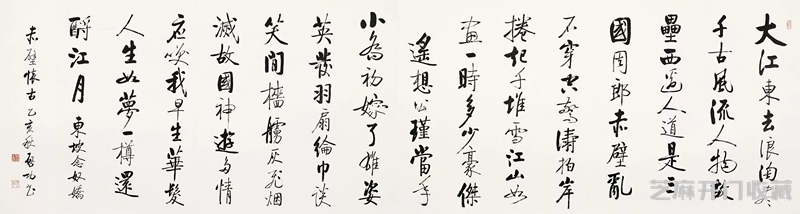 大江東去浪淘盡
千古風流人物故
壘西邊人道是三
國周郎赤壁亂
石穿空驚濤拍岸
捲起千堆雪江山如
畫一時多少豪傑
遙想公瑾當年
小喬初嫁了雄姿
英發羽扇綸巾談
笑間檣艣灰飛烟
滅故國神遊多情
應笑我早生華髮
人生如夢一樽還
酹江月 東坡念奴嬌
赤壁懷古 乙亥秋 啓功
芝麻开门收藏